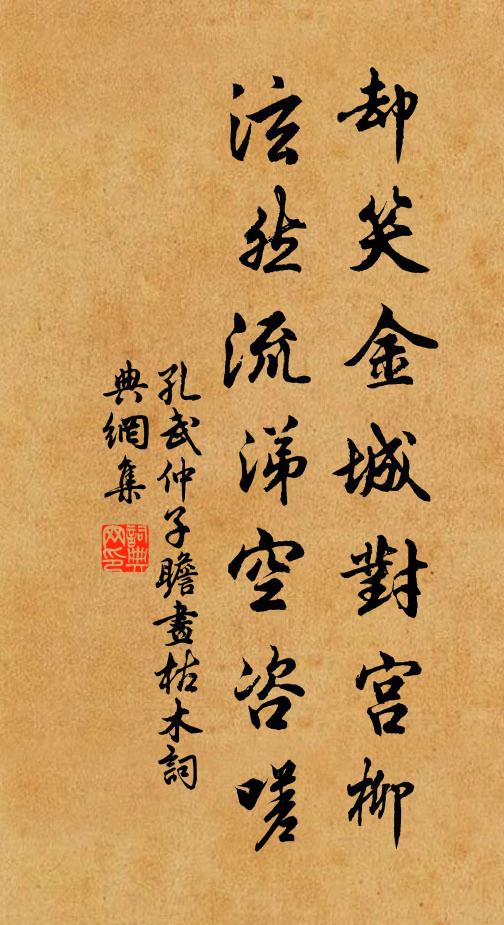 却笑金城對宮柳
泫然流涕空咨嗟
孔武仲子瞻畫枯木詞
典網集
詞典
网印